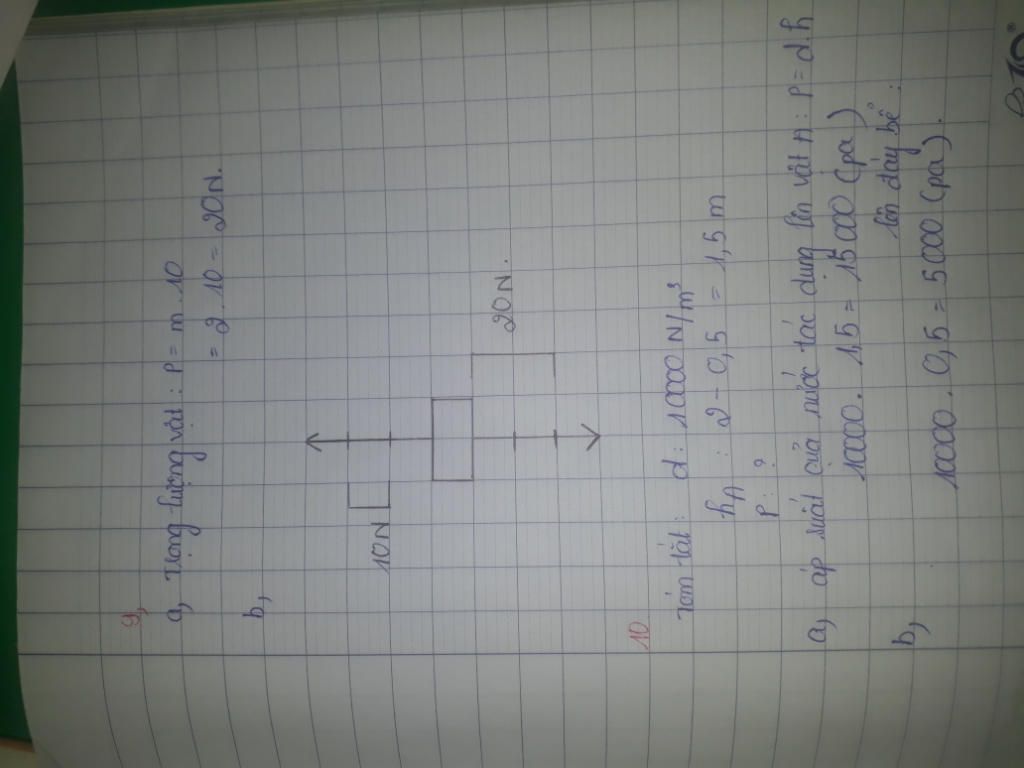 9,
a, Trọng lượng vật : P = m . 10
= 2 . 10 = 20N.
b,
10N
20N.
10
Tóm tắt : d : 10000 N/m³
hA : 2 - 0,5 = 1,5 m
P : ?
a, áp suất của nước tác dụng lên vật A : P = d.h
10000 . 1,5 = 15000 (pa)
b, lên đáy bể :
10000 . 0,5 = 5000 (pa).